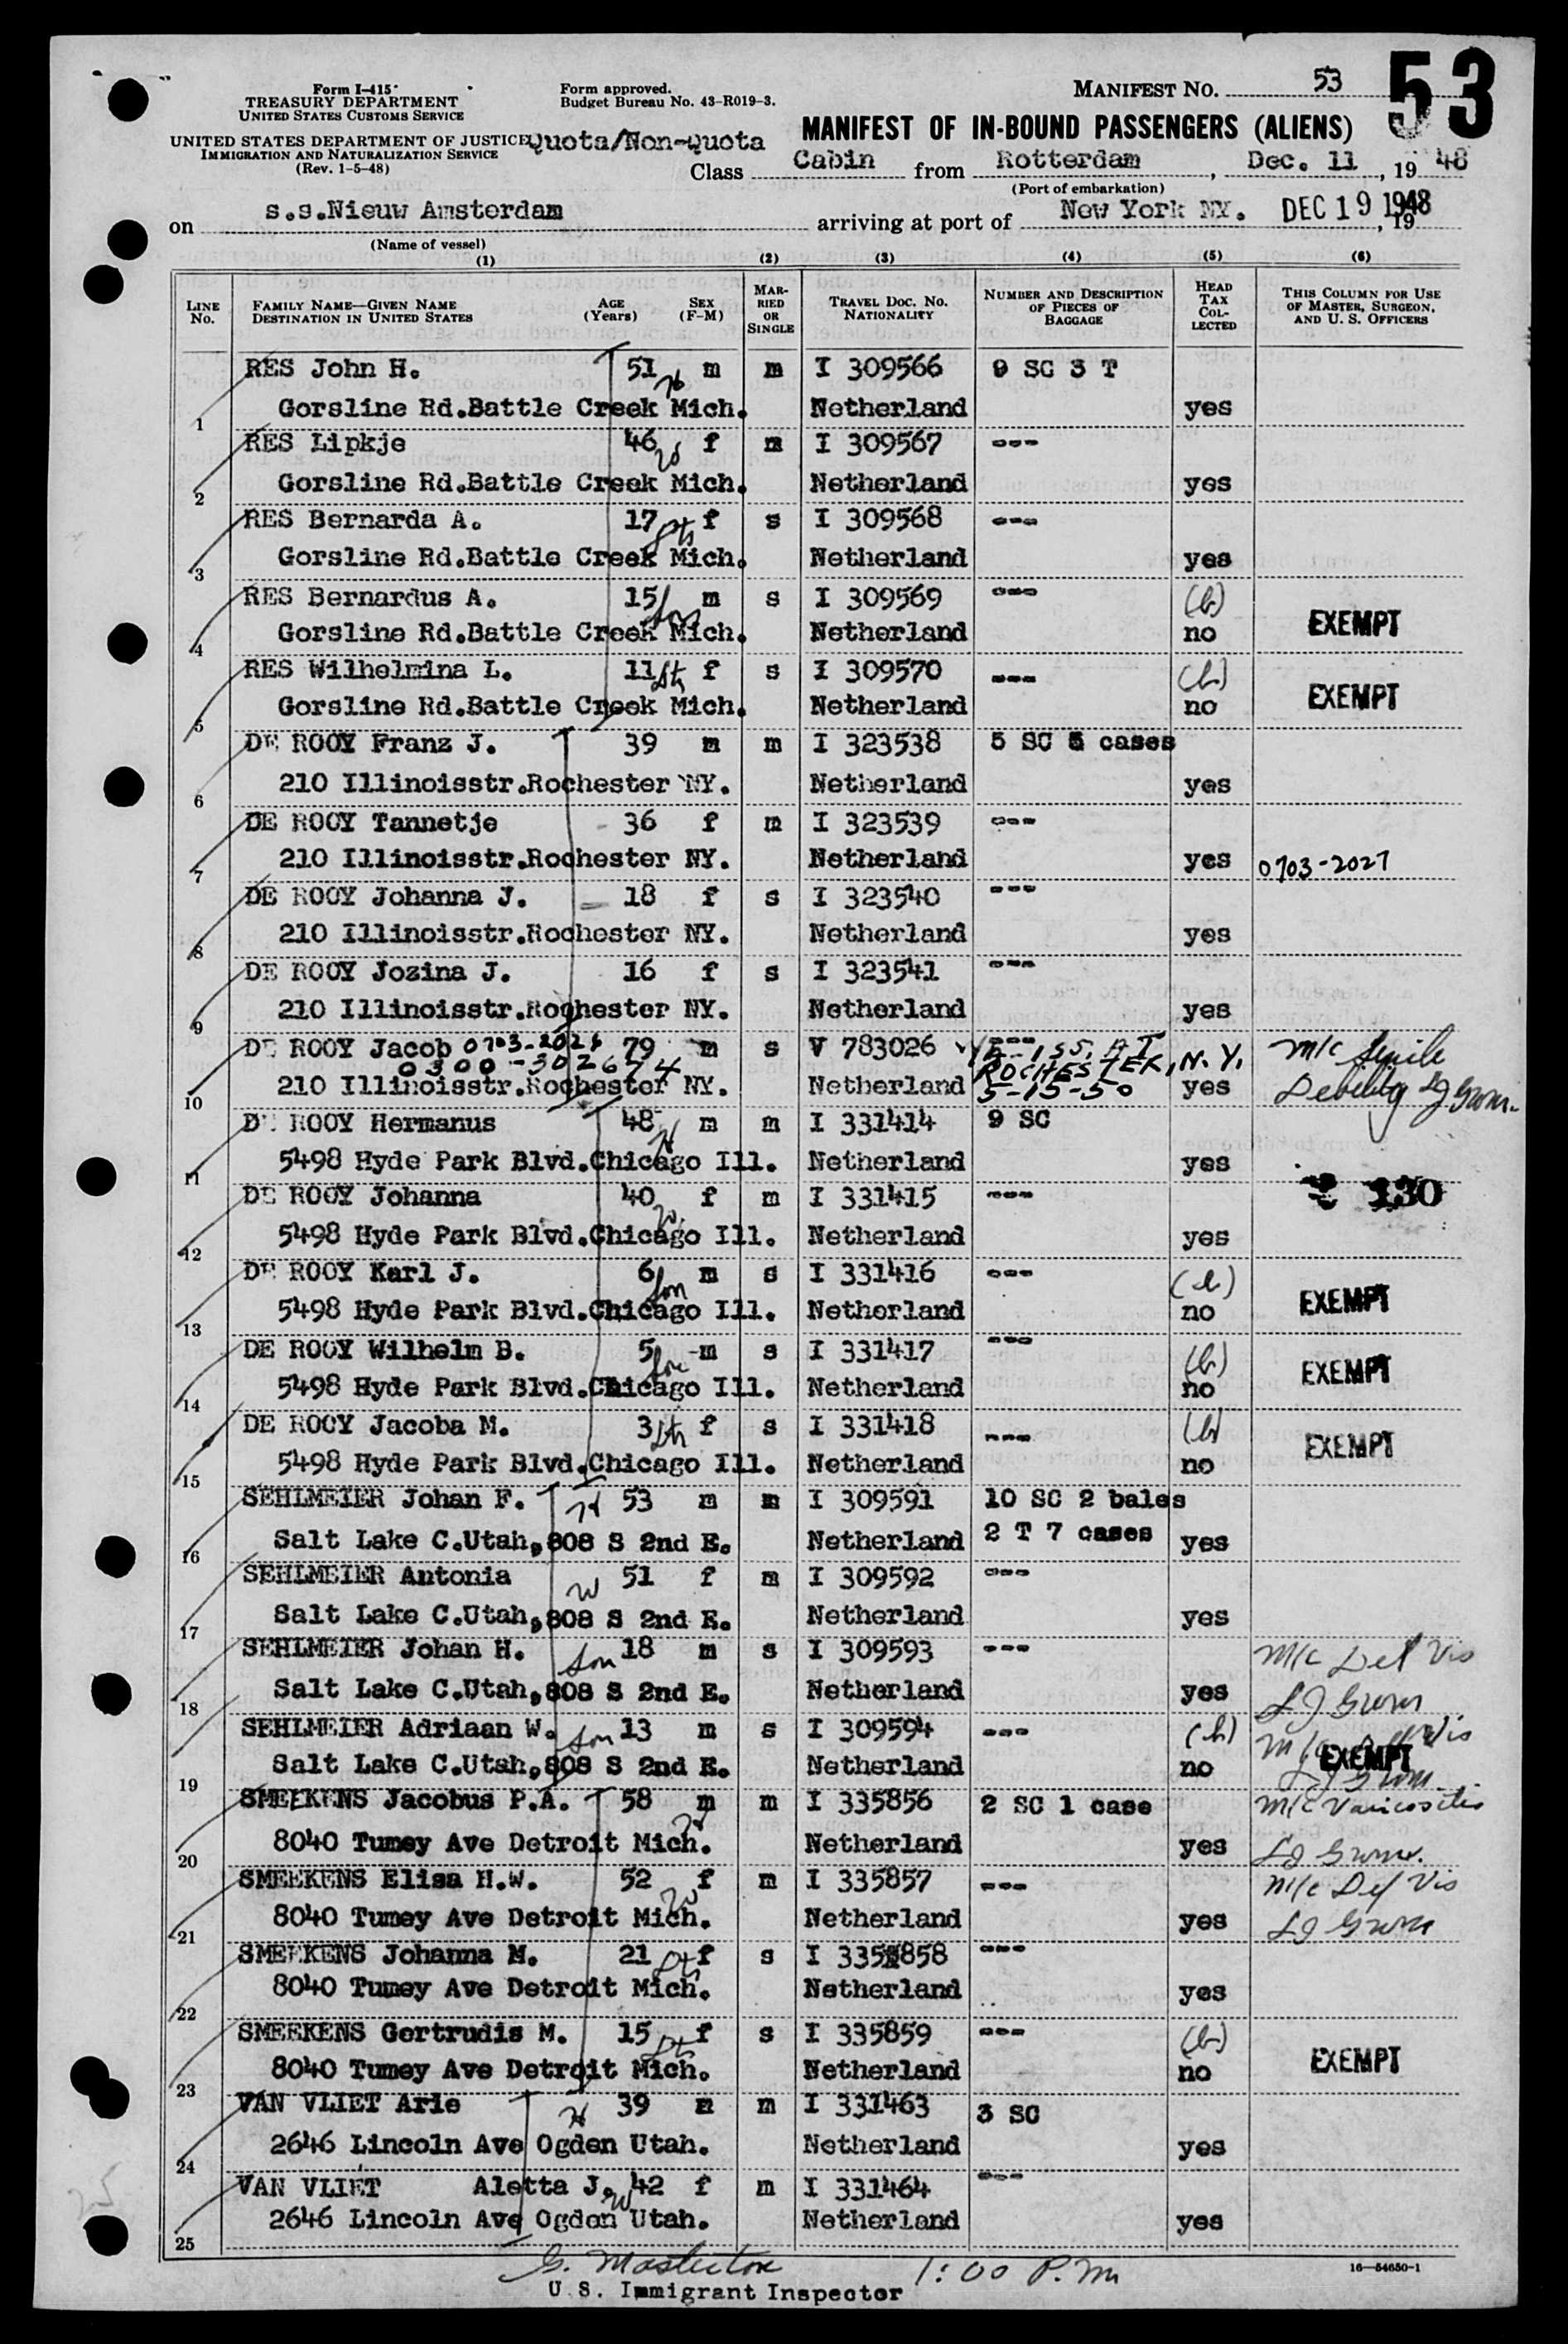 53
Form I-415
TREASURY DEPARTMENT
UNITED STATES CUSTOMS SERVICE
UNITED STATES DEPARTMENT OF JUSTICE
IMMIGRATION AND NATURALIZATION SERVICE
(Rev. 1-5-48)
Form approved.
Budget Bureau No. 43-R019-3.
MANIFEST NO. 53
Quota/Non-Quota
MANIFEST OF IN-BOUND PASSENGERS (ALIENS)
Class Cabin from Rotterdam, Dec. 11, 1948
(Port of embarkation)
on s.s.Nieuw Amsterdam arriving at port of New York NY. DEC 19 1948, 19
(Name of vessel)
(1) (2) (3) (4) (5) (6)
LINE No. FAMILY NAME—GIVEN NAME DESTINATION IN UNITED STATES AGE (Years) SEX (F-M) MARRIED OR SINGLE TRAVEL DOC. NO. NATIONALITY NUMBER AND DESCRIPTION OF PIECES OF BAGGAGE HEAD TAX COLLECTED THIS COLUMN FOR USE OF MASTER, SURGEON, AND U. S. OFFICERS
RES John H. 51 m m I 309566 9 SC 3 T
1 Gorsline Rd.Battle Creek Mich. Netherland yes
RES Lipkje 46 w f m I 309567 ---
2 Gorsline Rd.Battle Creek Mich. Netherland yes
RES Bernarda A. 17 f s I 309568 ---
3 Gorsline Rd.Battle Creek Mich. Netherland yes
RES Bernardus A. 15 son m s I 309569 --- (h)
4 Gorsline Rd.Battle Creek Mich. Netherland no EXEMPT
RES Wilhelmina L. 11 f s I 309570 --- (h)
5 Gorsline Rd.Battle Creek Mich. Netherland no EXEMPT
DE ROOY Franz J. 39 m m I 323538 5 SC 5 cases
6 210 Illinoisstr.Rochester NY. Netherland yes
DE ROOY Tannetje 36 f m I 323539 ---
7 210 Illinoisstr.Rochester NY. Netherland yes 0703-2027
DE ROOY Johanna J. 18 f s I 323540 ---
8 210 Illinoisstr.Rochester NY. Netherland yes
DE ROOY Jozina J. 16 f s I 323541 ---
9 210 Illinoisstr.Rochester NY. Netherland yes
DE ROOY Jacob 0703-2026 79 m s V 783026 --- m/c Senile
0300-302674 ROCHESTER, N.Y.
10 210 Illinoisstr.Rochester NY. Netherland 5-15-50 yes Debility
DE ROOY Hermanus 48 m m I 331414 9 SC
11 5498 Hyde Park Blvd.Chicago Ill. Netherland yes
DE ROOY Johanna 40 w f m I 331415 --- 130
12 5498 Hyde Park Blvd.Chicago Ill. Netherland yes
DE ROOY Karl J. 6 son m s I 331416 --- (h)
13 5498 Hyde Park Blvd.Chicago Ill. Netherland no EXEMPT
DE ROOY Wilhelm B. 5 son m s I 331417 --- (h)
14 5498 Hyde Park Blvd.Chicago Ill. Netherland no EXEMPT
DE ROOY Jacoba M. 3 f s I 331418 --- (h)
15 5498 Hyde Park Blvd.Chicago Ill. Netherland no EXEMPT
SEHLMEIER Johan F. 53 m m I 309591 10 SC 2 bales
16 Salt Lake C.Utah,808 S 2nd E. Netherland 2 T 7 cases yes
SEHLMEIER Antonia w 51 f m I 309592 ---
17 Salt Lake C.Utah,808 S 2nd E. Netherland yes
SEHLMEIER Johan H. son 18 m s I 309593 --- m/c Def Vis
18 Salt Lake C.Utah,808 S 2nd E. Netherland yes
SEHLMEIER Adriaan W. son 13 m s I 309594 --- (h) m/c Def Vis
19 Salt Lake C.Utah,808 S 2nd E. Netherland no EXEMPT
SMEEKENS Jacobus P.A. 58 m m I 335856 2 SC 1 case m/c Varicosities
20 8040 Tumey Ave Detroit Mich. Netherland yes
SMEEKENS Elisa H.W. 52 w f m I 335857 --- m/c Def Vis
21 8040 Tumey Ave Detroit Mich. Netherland yes
SMEEKENS Johanna M. 21 f s I 335858 ---
22 8040 Tumey Ave Detroit Mich. Netherland yes
SMEEKENS Gertrudis M. 15 f s I 335859 --- (h)
23 8040 Tumey Ave Detroit Mich. Netherland no EXEMPT
VAN VLIET Arie 39 m m I 331463 3 SC
24 2646 Lincoln Ave Ogden Utah. Netherland yes
VAN VLIET Aletta J. w 42 f m I 331464 ---
25 2646 Lincoln Ave Ogden Utah. Netherland yes
1:00 P.m
U.S. Immigrant Inspector
16—54650-1